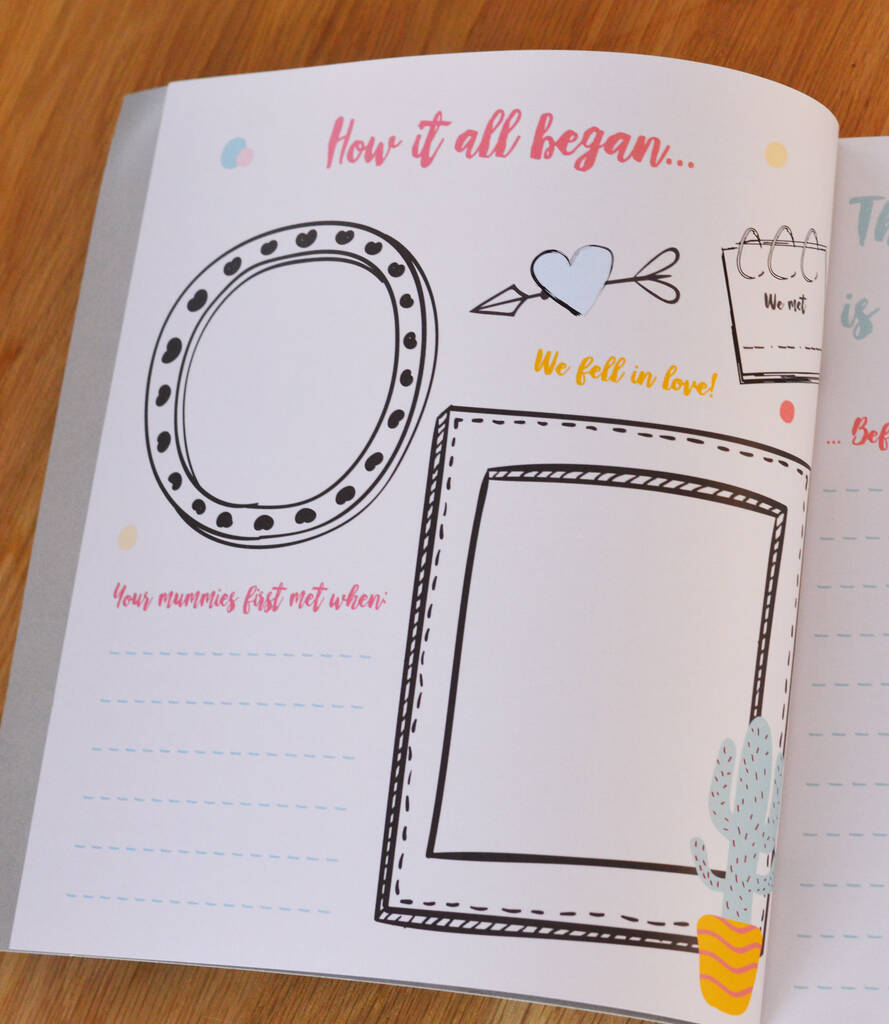 How it all began...
We met
We fell in love!
Your mummies first met when:
is
...